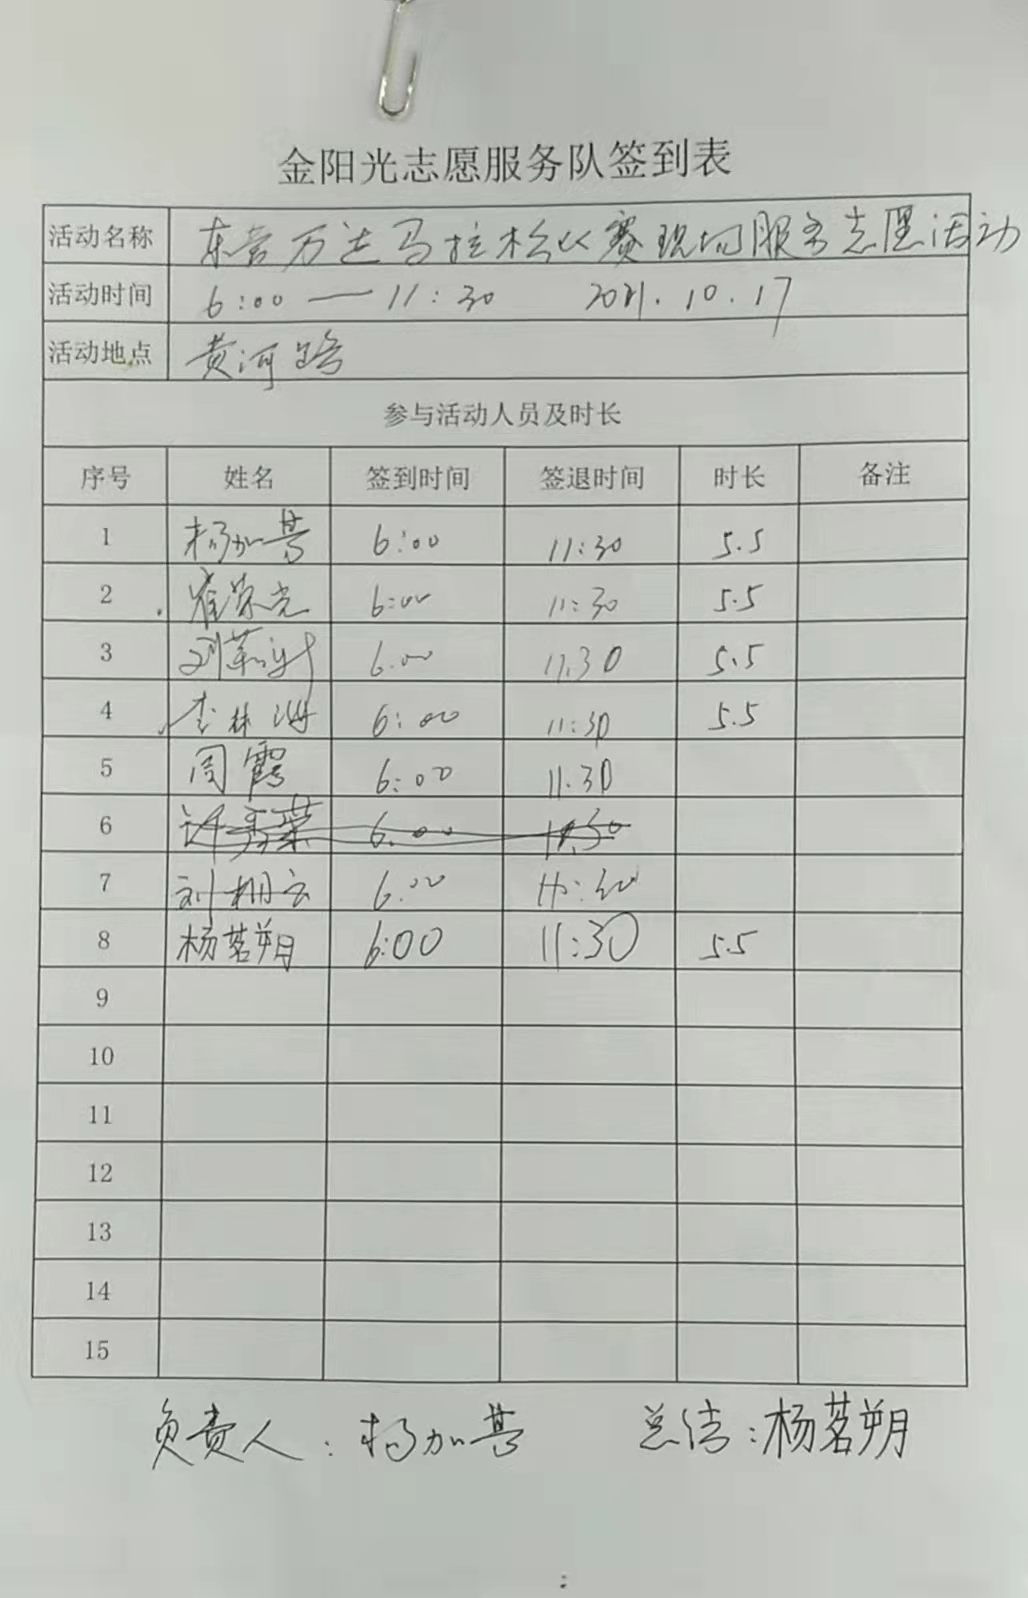 金阳光志愿服务队签到表
活动名称 东营万达马拉松比赛现场服务志愿活动
活动时间 6:00 — 11:30 2021.10.17
活动地点 黄河路
参与活动人员及时长
序号 姓名 签到时间 签退时间 时长 备注
1 杨加 6:00 11:30 5.5
2 崔荣光 6:00 11:30 5.5
3 刘 6:00 11:30 5.5
4 李林海 6:00 11:30 5.5
5 周霞 6:00 11:30
6 许秀荣 6:00 11:30
7 刘棚云 6:00
8 杨茗朔 6:00 11:30 5.5
9
10
11
12
13
14
15
负责人：杨加 总结：杨茗朔